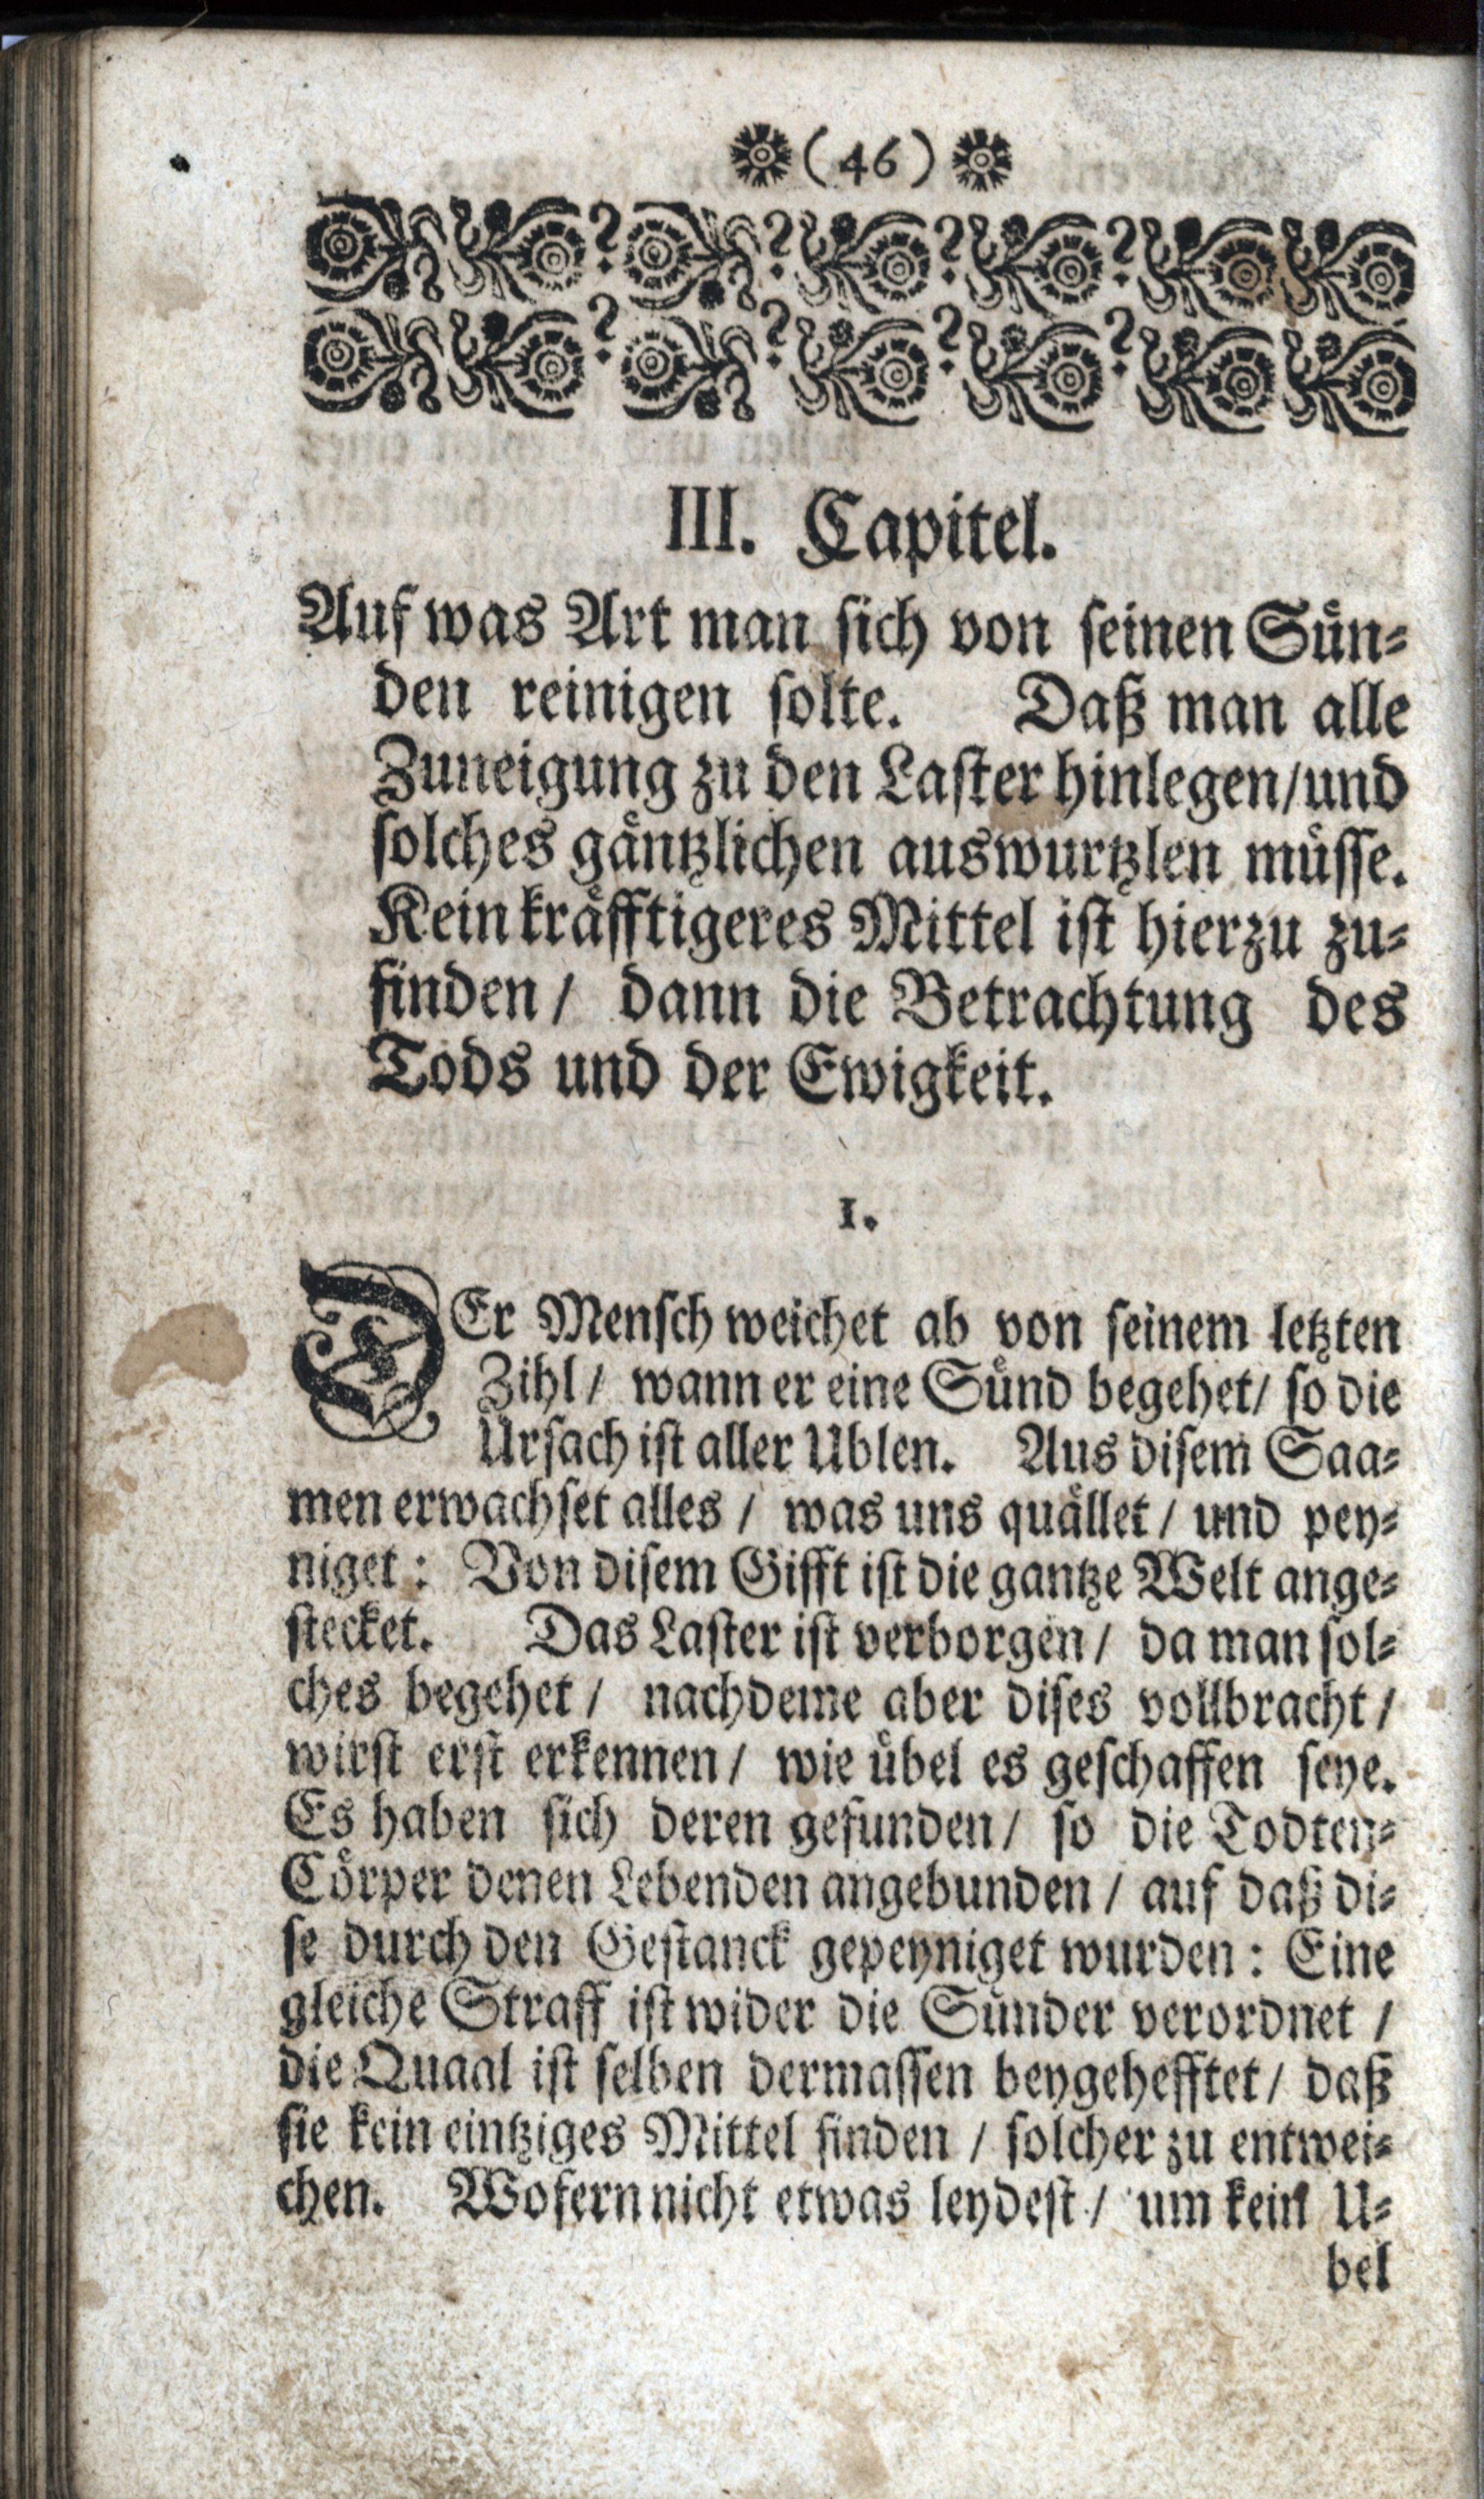 (46)
III. Capitel.
Auf was Art man sich von seinen Sün-
den reinigen solte. Daß man alle
Zuneigung zu den Laster hinlegen/und
solches gäntzlichen auswurtzlen müsse.
Kein kräfftigeres Mittel ist hierzu zu-
finden/ dann die Betrachtung des
Tods und der Ewigkeit.
1.
DEr Mensch weichet ab von seinem letzten
Zihl/ wann er eine Sünd begehet/ so die
Ursach ist aller Ublen. Aus disem Saa-
men erwachset alles / was uns quället / und pey-
niget: Von disem Gifft ist die gantze Welt ange-
stecket. Das Laster ist verborgen / da man sol-
ches begehet / nachdeme aber dises vollbracht /
wirst erst erkennen / wie übel es geschaffen seye.
Es haben sich deren gefunden / so die Todten-
Cörper denen Lebenden angebunden / auf daß di-
se durch den Gestanck gepeyniget wurden: Eine
gleiche Straff ist wider die Sünder verordnet /
die Quaal ist selben dermassen beygehefftet / daß
sie kein eintziges Mittel finden / solcher zu entwei-
chen. Wofern nicht etwas leydest / um kein U-
bel